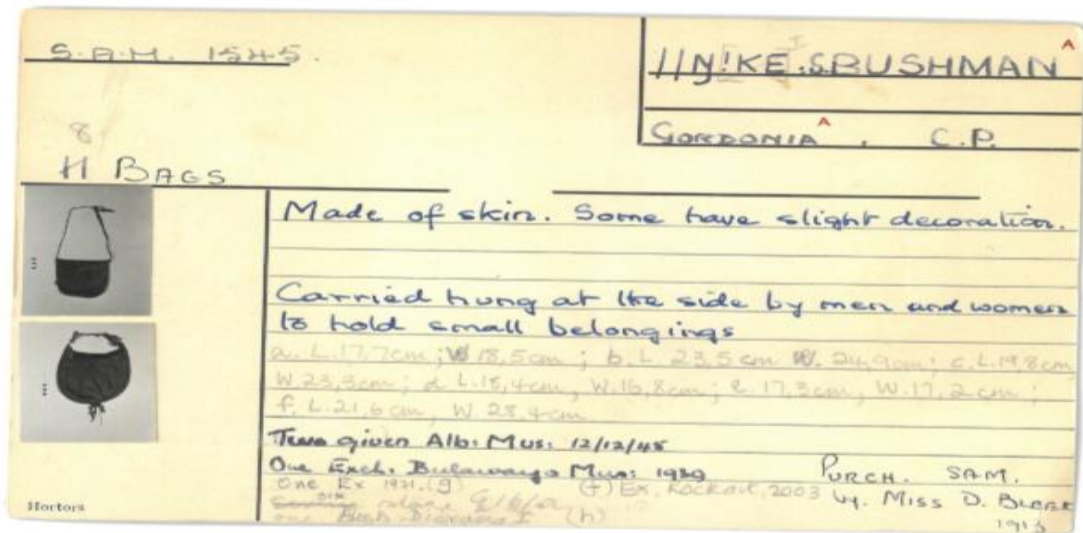 S.A.M. 1545.
//N!KE .S.BUSHMAN ^
GORDONIA ^ , C.P.
8
H BAGS
Made of skin. Some have slight decoration.
Carried hung at the side by men and women
to hold small belongings
a. L.17,7cm; W 18,5cm; b. L. 23,5cm W. 24,9cm; c. L.19,8cm
W. 23,3cm; d. L.18,4cm, W.16,8cm; e. 17,3cm, W.17,2cm;
f. L.21,6cm, W. 28,4cm
Two given Alb: Mus: 12/12/45
One Exch. Bulawayo Mus: 1939
One Ex 1921.(g) (f) Ex. Lockout, 2003
six
(h)
PURCH. SAM.
by. MISS D. BLEEK
Hortors